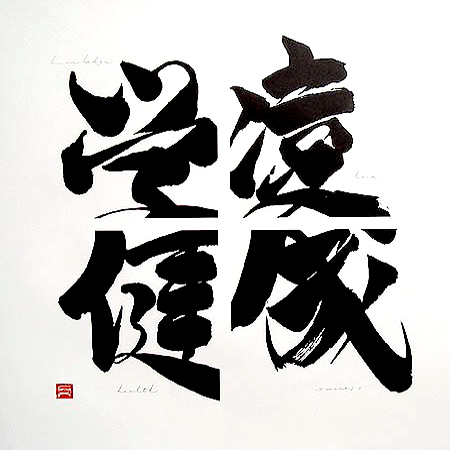 knowledge
学愛
love
健成
health
success